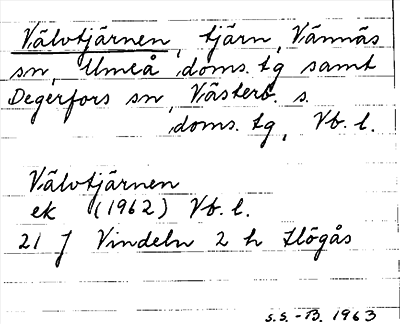 Välvtjärnen, tjärn, Vännäs
sn, Umeå doms. tg samt
Degerfors sn, Västerb. s.
doms. tg, Vb. l.
Välvtjärnen
ek (1962) Vb. l.
21 J Vindeln 2 h Högås
s.s. - B. 1963